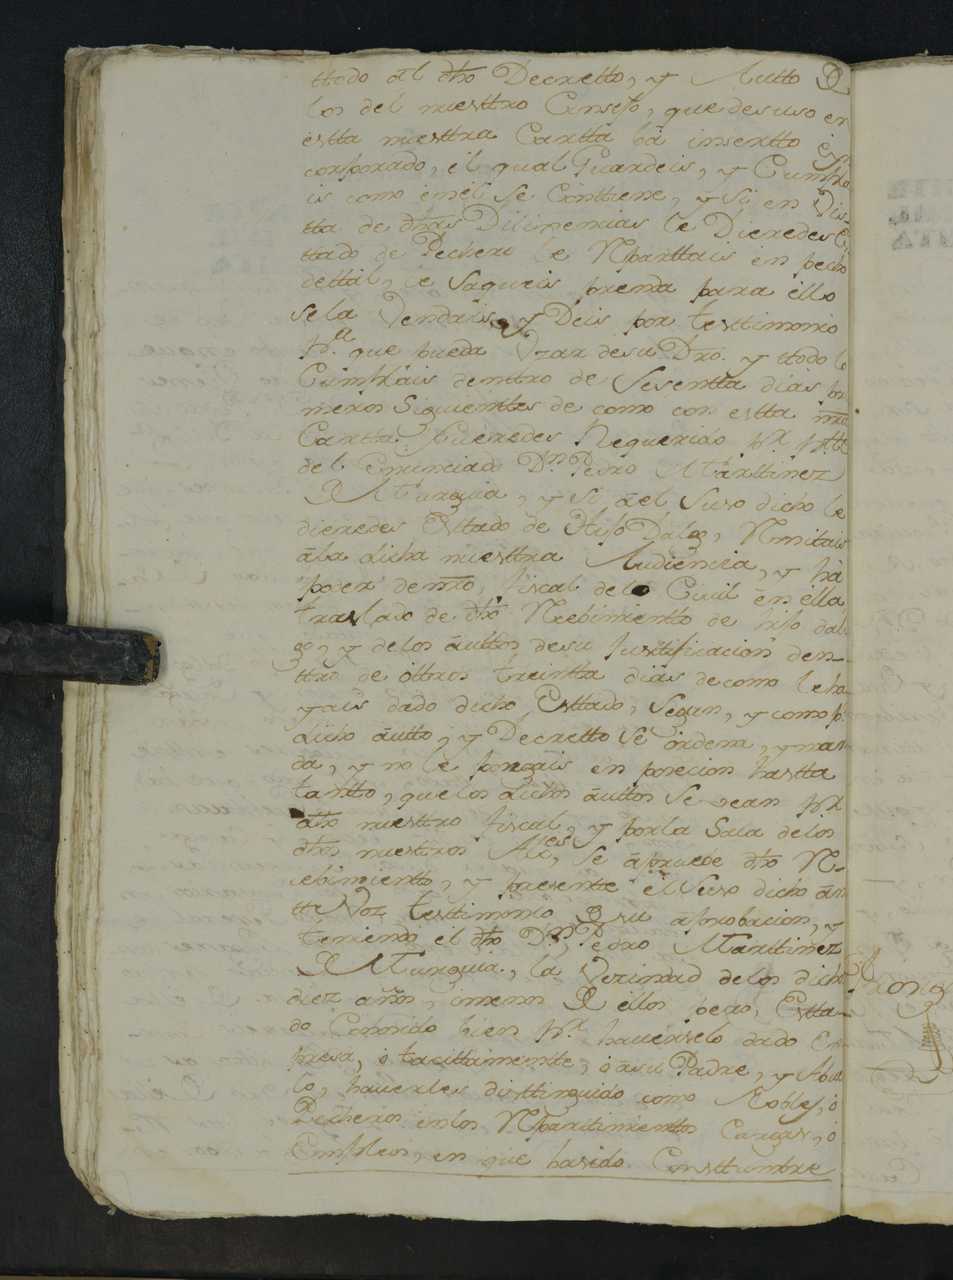 ttodo ál dho Decretto, y Autto de
los del nuesttro Consejo, que desuso en
estta nuesttra Cartta bá insertto è yn
corporado, él qual Guardeis, y Cumpla
is como enél Se Conttiene, y Si en Vis-
tta de dhas Dilixencias le Dieredes Es
ttado de Pechero le Reparttais en pecho
dettál, le Saqueis prenda para éllo
sela Vendais, y Deis por testtimonio
pa. que pueda Vzar desu Dro. y ttodo lo
Cumpláis dentro de Sesentta dias pri
meros Siguienttes de como con estta nra
Cartta fueredes Requerido pr. ptte
del Enunciado Dn. Pedro Marttinez
de Murguia, y Si àél Suso dicho le
dieredes Esttado de Hijo Dalgo, Remitais
ála dicha nuesttra Audiencia, y há
poder denro, fiscal delo Civil én élla
traslado de dho Recibimientto de hijo dal
go, y delos áuttos desu Justificacion den-
ttro de ottros treintta dias decomo leha
yais dado dicho Esttado, Segun, y como pr
dicho áutto, y Decretto Se órdena, y man
da, y no le pongáis en posecion hastta
tantto, quelos dichos áuttos Se vean pr.
dho nuesttro fiscal, y porla Sala delos
dhos nuestros Alces, Se ápruebe dho Re-
cibimientto, y presentte él Suso dicho án
tte Voz testtimonio de su aprobacion, y
teniendo él dho Dn. Pedro Marttinez
de Murguia, la Vezindad delos dichos
diez años, ímenos de éllos pero, Estta-
do Conosido bien pr. havérselo dado Ex
presa, ó tacittamentte, ó ásu Padre, y Abue
lo, haverles disttinguido como Nobles, ó
Pecheros enlos Reparttimienttos Cargas, ó
Empleos, en que hasido Costtumbre